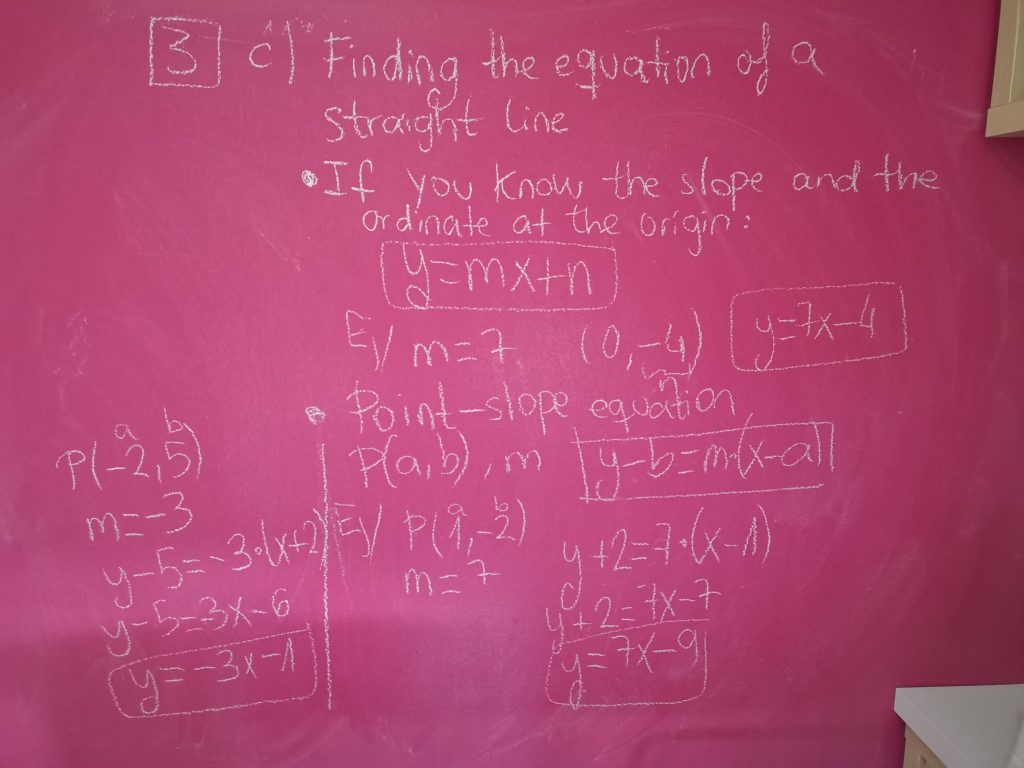 3 c) Finding the equation of a
straight line
• If you know the slope and the
ordinate at the origin:
y=mx+n
E/ m=7 (0,-4) y=7x-4
n
• Point-slope equation
P(a,b), m y-b=m·(x-a)
E/ a b
P(1,-2) y+2=7·(x-1)
m=7 y+2=7x-7
y=7x-9
a b
P(-2,5)
m=-3
y-5=-3·(x+2)
y-5=-3x-6
y=-3x-1